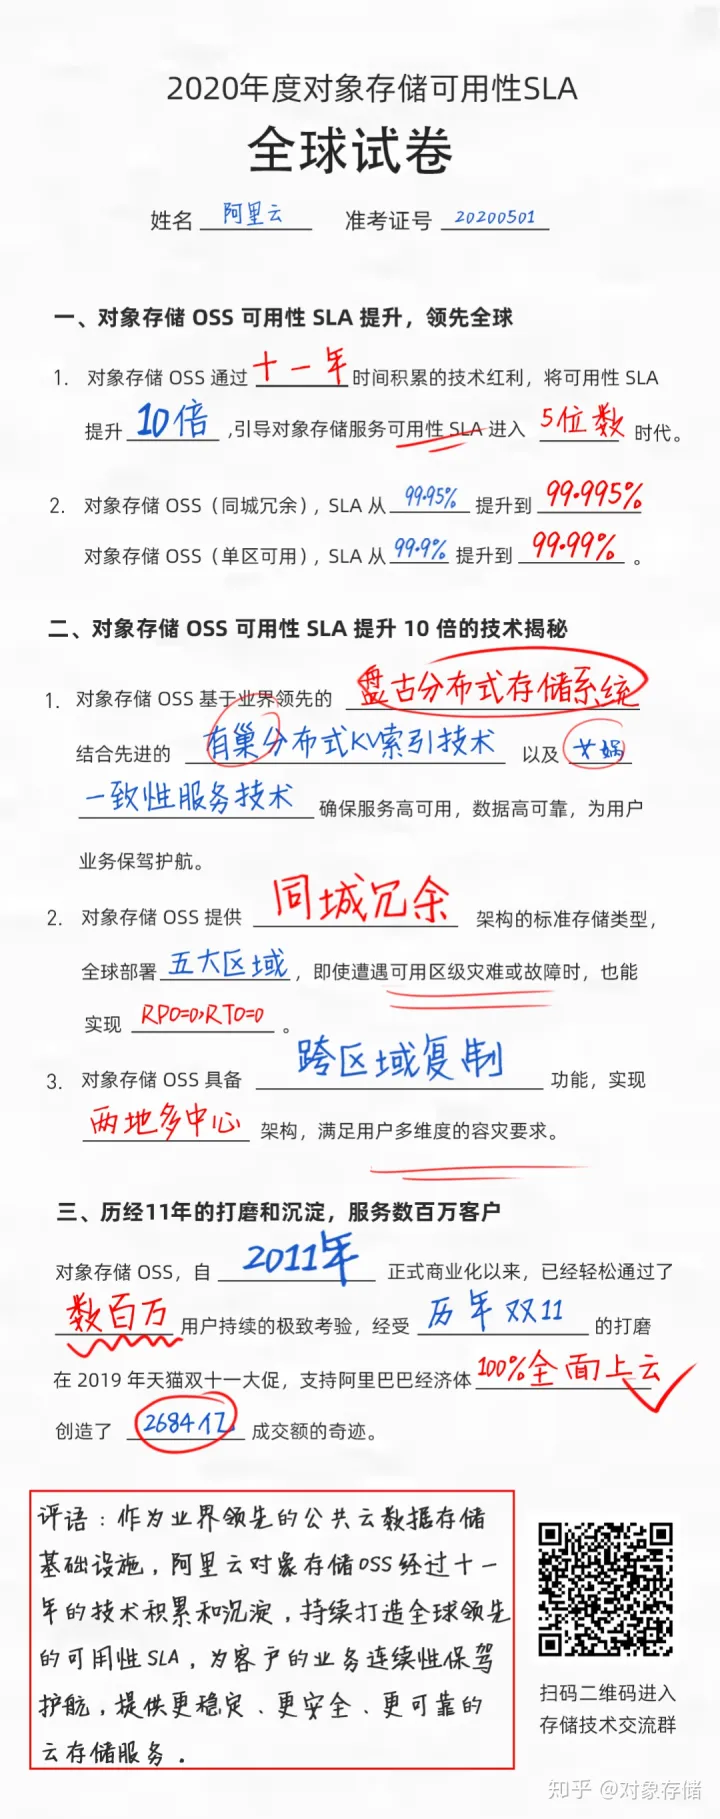 2020年度对象存储可用性SLA
全球试卷
姓名 阿里云 准考证号 20200501
一、对象存储 OSS 可用性 SLA 提升，领先全球
1. 对象存储 OSS 通过 十一年 时间积累的技术红利，将可用性 SLA
提升 10倍 ,引导对象存储服务可用性 SLA 进入 5位数 时代。
2. 对象存储 OSS（同城冗余）, SLA 从 99.95% 提升到 99.995%
对象存储 OSS（单区可用）, SLA 从 99.9% 提升到 99.99% 。
二、对象存储 OSS 可用性 SLA 提升 10 倍的技术揭秘
1. 对象存储 OSS 基于业界领先的 盘古分布式存储系统
结合先进的 有巢分布式KV索引技术 以及 女娲
一致性服务技术 确保服务高可用，数据高可靠，为用户
业务保驾护航。
2. 对象存储 OSS 提供 同城冗余 架构的标准存储类型，
全球部署 五大区域 ，即使遭遇可用区级灾难或故障时，也能
实现 RPO=0,RTO=0 。
3. 对象存储 OSS 具备 跨区域复制 功能，实现
两地多中心 架构，满足用户多维度的容灾要求。
三、历经11年的打磨和沉淀，服务数百万客户
对象存储 OSS，自 2011年 正式商业化以来，已经轻松通过了
数百万 用户持续的极致考验，经受 历年双11 的打磨
在 2019 年天猫双十一大促，支持阿里巴巴经济体 100%全面上云
创造了 2684亿 成交额的奇迹。
评语：作为业界领先的公共云数据存储
基础设施，阿里云对象存储OSS经过十一
年的技术积累和沉淀，持续打造全球领先
的可用性SLA，为客户的业务连续性保驾
护航，提供更稳定、更安全、更可靠的
云存储服务.
扫码二维码进入
存储技术交流群
知乎 @对象存储